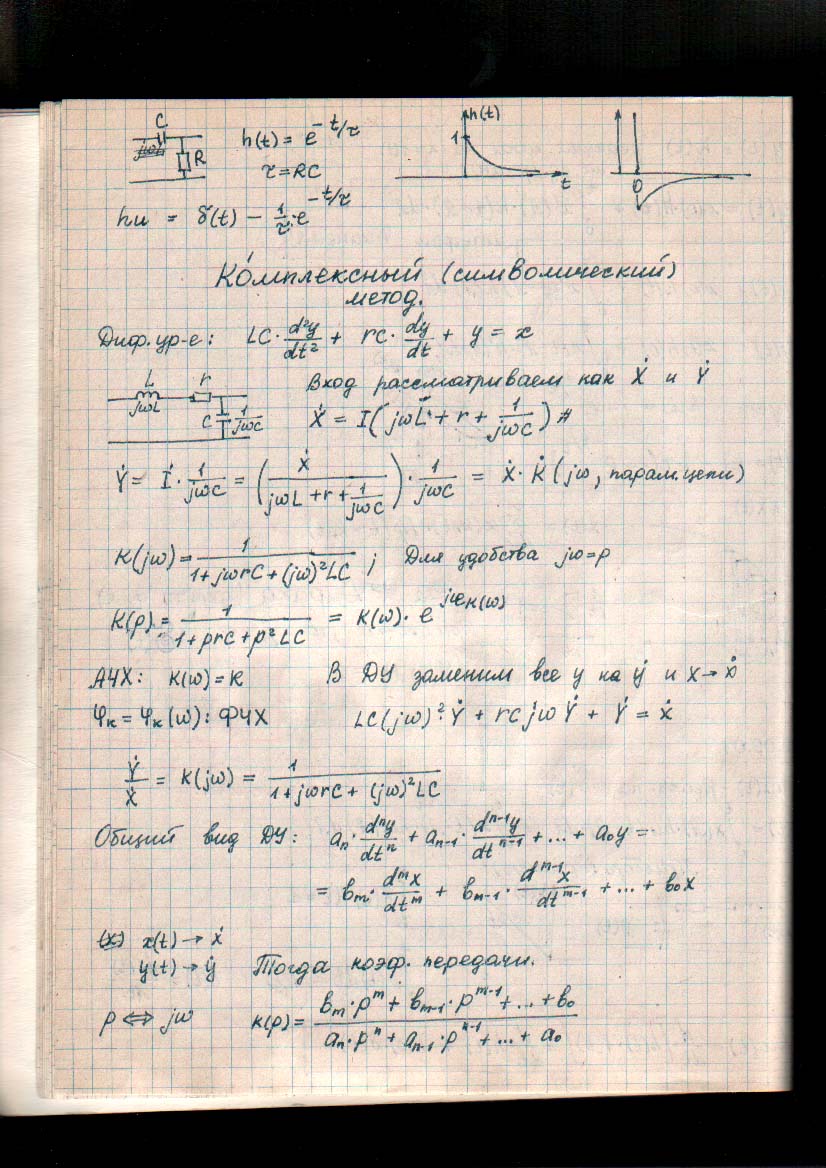 C
j̶ω̶L̶ R
h(t) = e^{-t/τ}
τ = RC
h(t)
1
t
0
hи = δ(t) - 1/τ · e^{-t/τ}
Комплексный (символический)
метод.
Диф. ур-е: LC · d²y/dt² + rC · dy/dt + y = x
L r
jωL
C 1/jωC
Вход рассматриваем как Ẋ и Ẏ
Ẋ = I(jωL + r + 1/jωC) #
Ẏ = İ · 1/jωC = (Ẋ / (jωL + r + 1/jωC)) · 1/jωC = Ẋ · K̇ (jω, парам. цепи)
K(jω) = 1/(1 + jωrC + (jω)²LC) ; Для удобства jω = p
K(p) = 1/(1 + prC + p²LC) = K(ω) · e^{jφK(ω)}
АЧХ: K(ω) = K В ДУ заменим все y на ẏ и x → ẋ
φк = φк(ω): ФЧХ LC(jω)² · Ẏ + rC jω Ẏ + Ẏ = Ẋ
Ẏ/Ẋ = K(jω) = 1/(1 + jωrC + (jω)²LC)
Общий вид ДУ: aₙ · dⁿy/dtⁿ + aₙ₋₁ · dⁿ⁻¹y/dtⁿ⁻¹ + ... + a₀y =
= bₘ · dᵐx/dtᵐ + bₘ₋₁ · dᵐ⁻¹x/dtᵐ⁻¹ + ... + b₀x
(x) x(t) → Ẋ
y(t) → ẏ Тогда коэф. передачи.
p ⟺ jω K(p) = (bₘ · pᵐ + bₘ₋₁ · pᵐ⁻¹ + ... + b₀)/(aₙ · pⁿ + aₙ₋₁ · pⁿ⁻¹ + ... + a₀)